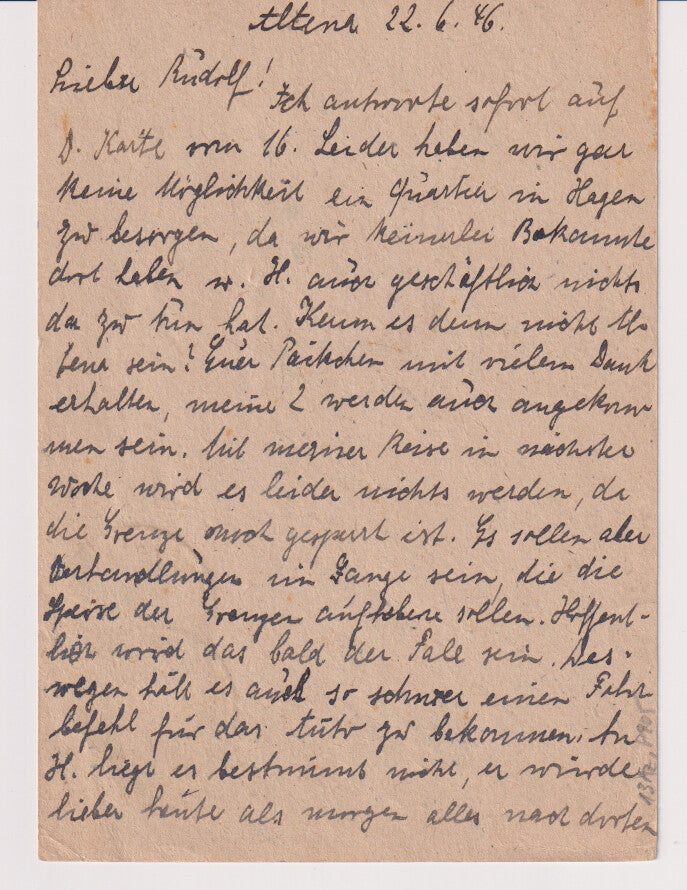 Altena 22.6.46.
Lieber Rudolf!
Ich antworte sofort auf
D. Karte vom 16. Leider haben wir gar
keine Möglichkeit ein Quartier in Hagen
zu besorgen, da wir keinerlei Bekannte
dort haben u. H. auch geschäftlich nichts
da zu tun hat. Kann es denn nicht Al-
tena sein? Euer Päckchen mit vielem Dank
erhalten, meine 2 werden auch angekom-
men sein. Mit meiner Reise in nächster
Woche wird es leider nichts werden, da
die Grenze noch gesperrt ist. Es sollen aber
Verhandlungen im Gange sein, die die
Sperre der Grenzen aufheben sollen. Hoffent-
lich wird das bald der Fall sein. Des-
wegen hält es auch so schwer einen Fahr-
befehl für das Auto zu bekommen. An
H. liegt es bestimmt nicht, er würde
lieber heute als morgen alles nach dorten